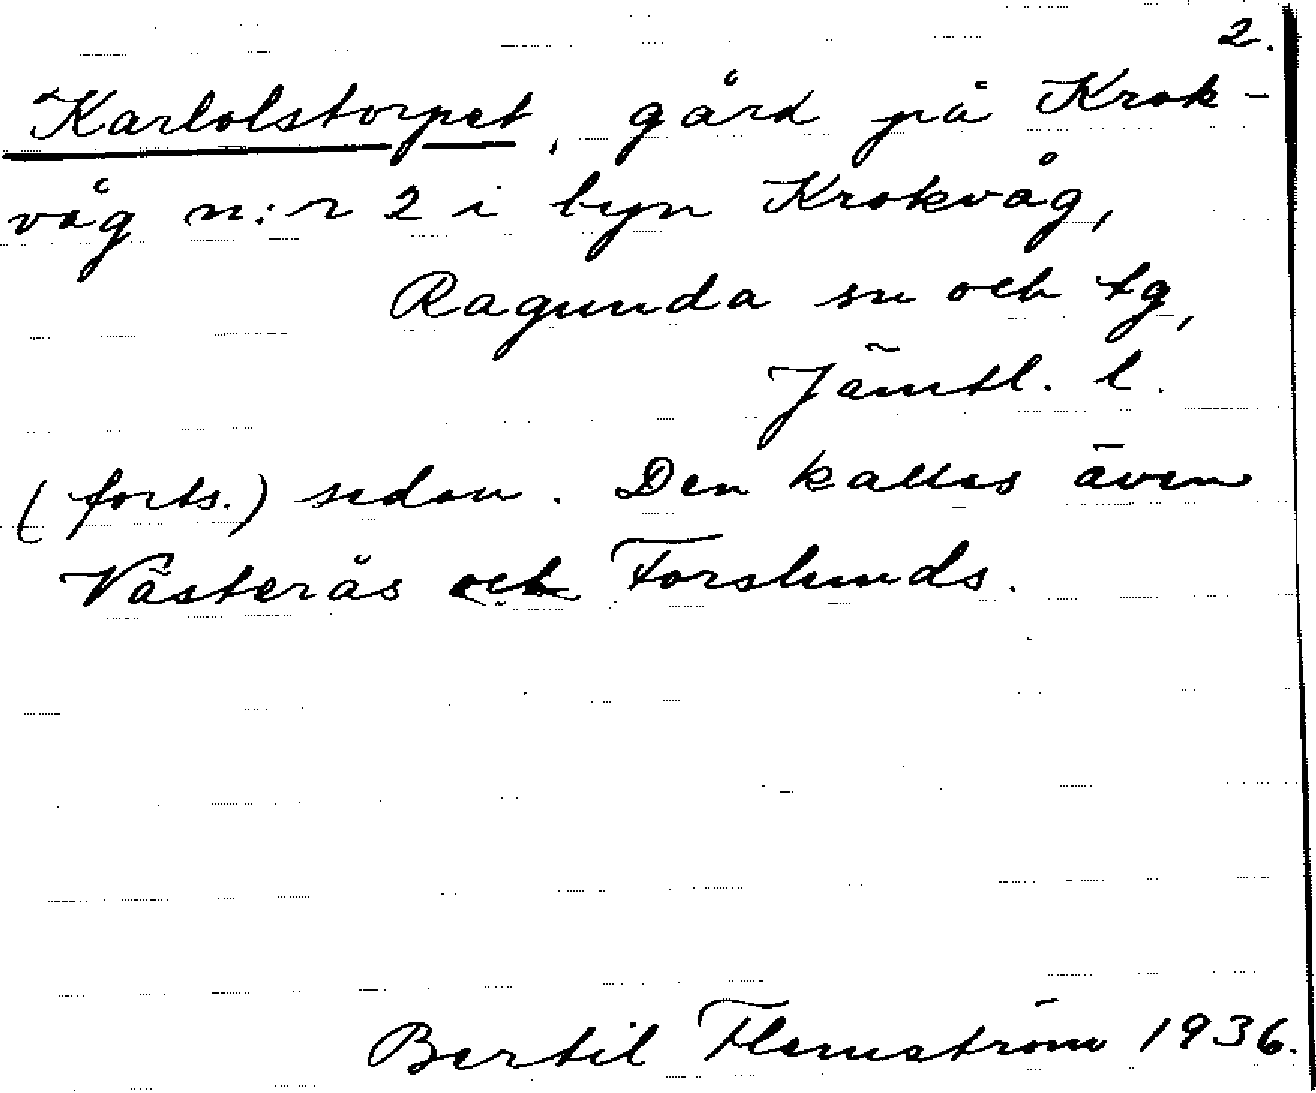 2.
Karlolstorpet, gård på Krok-
våg n:r 2 i byn Krokvåg,
Ragunda sn och tg,
Jämtl. l.
(forts.) sedan. Den kallas även
Västerås och Forslunds.
Bertil Flemström 1936.